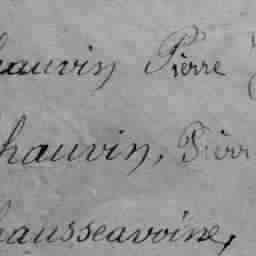 hauvin Pierre
hauvin, Pierr
hausseavoine,